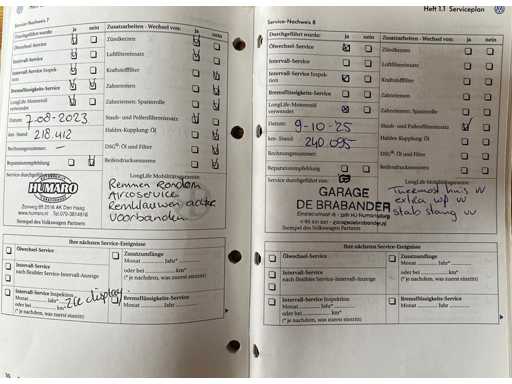 Service-Nachweis 7
Durchgeführt wurde: ja nein
Ölwechsel-Service
Intervall-Service
Intervall-Service Inspektion
Bremsflüssigkeits-Service
LongLife-Motorenöl verwendet
Datum: 7-08-2023
km-Stand: 218.412
Rechnungsnummer:
Reparaturempfehlung
Zusatzarbeiten - Wechsel von: ja nein
Zündkerzen
Luftfiltereinsatz
Kraftstofffilter
Zahnriemen
Zahnriemen: Spannrolle
Staub- und Pollenfiltereinsatz
Haldex-Kupplung: Öl
DSG®: Öl und Filter
Reifendruckensensoren
Service durchgeführt
HUMARO
Zonweg 65 2516 AK Den Haag
Stempel des Volkswagen Partners
LongLife Mobilitätsgarantie
Remmen rondom
Aircoservice
Remklauwen achter
Voorbanden
Ihre nächsten Service-Ereignisse
Ölwechsel-Service
Intervall-Service
nach flexibler Service-Intervall-Anzeige
Intervall-Service Inspektion
Monat Jahr*
oder bei km
(* je nachdem, was zuerst eintritt)
Zie display
Zusatzumfänge
Monat Jahr*
oder bei km
(* je nachdem, was zuerst eintritt)
Bremsflüssigkeits-Service
Monat Jahr
Heft 1.1 Serviceplan
Service-Nachweis 8
Durchgeführt wurde: ja nein
Ölwechsel-Service
Intervall-Service
Intervall-Service Inspektion
Bremsflüssigkeits-Service
LongLife-Motorenöl verwendet
Datum: 9-10-25
km-Stand: 240.095
Rechnungsnummer:
Reparaturempfehlung
Zusatzarbeiten - Wechsel von: ja nein
Zündkerzen
Luftfiltereinsatz
Kraftstofffilter
Zahnriemen
Zahnriemen: Spannrolle
Staub- und Pollenfiltereinsatz
Haldex-Kupplung: Öl
DSG®: Öl und Filter
Service durchgeführt von:
GARAGE
DE BRABANDER
Stempel des Volkswagen Partners
LongLife Mobilitätsgarantie
extra wp vv
stab stang vv
Ihre nächsten Service-Ereignisse
Ölwechsel-Service
Intervall-Service
nach flexibler Service-Intervall-Anzeige
Intervall-Service Inspektion
Monat Jahr*
oder bei km
(* je nachdem, was zuerst eintritt)
Zusatzumfänge
Monat Jahr*
oder bei km
(* je nachdem, was zuerst eintritt)
Bremsflüssigkeits-Service
Monat Jahr